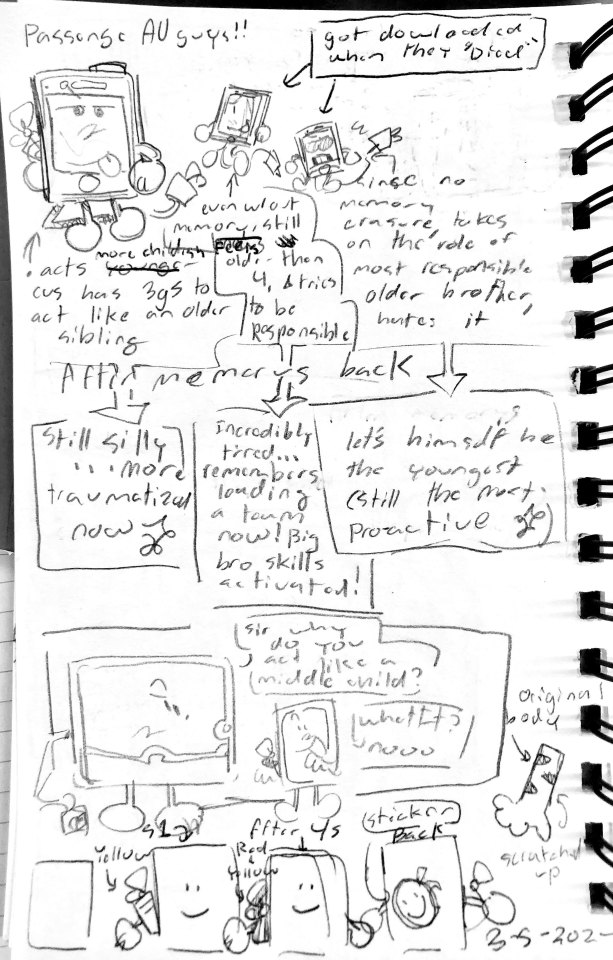 Passenge AU guys!!
got downloaded
when they "Died"
acts more childish
cus has 3gs to
act like an older
sibling
even w/out
memory, still
feels
older then
4, & tries
to be
Responsible
since no
memory
erasure, takes
on the role of
most responsible
older brother,
hates it
After memorys back
still silly
... more
traumatized
now
Incredibly
tired...
remembers
leading
a team
now! Big
bro skills
activated!
let's himself be
the youngest
(still the most
proactive )
sir why
do you
act like a
middle child?
what!?
nooo
original
body
scratched
up
Yellow
Red
&
Yellow
After 4s
sticker
Back
3-5-202